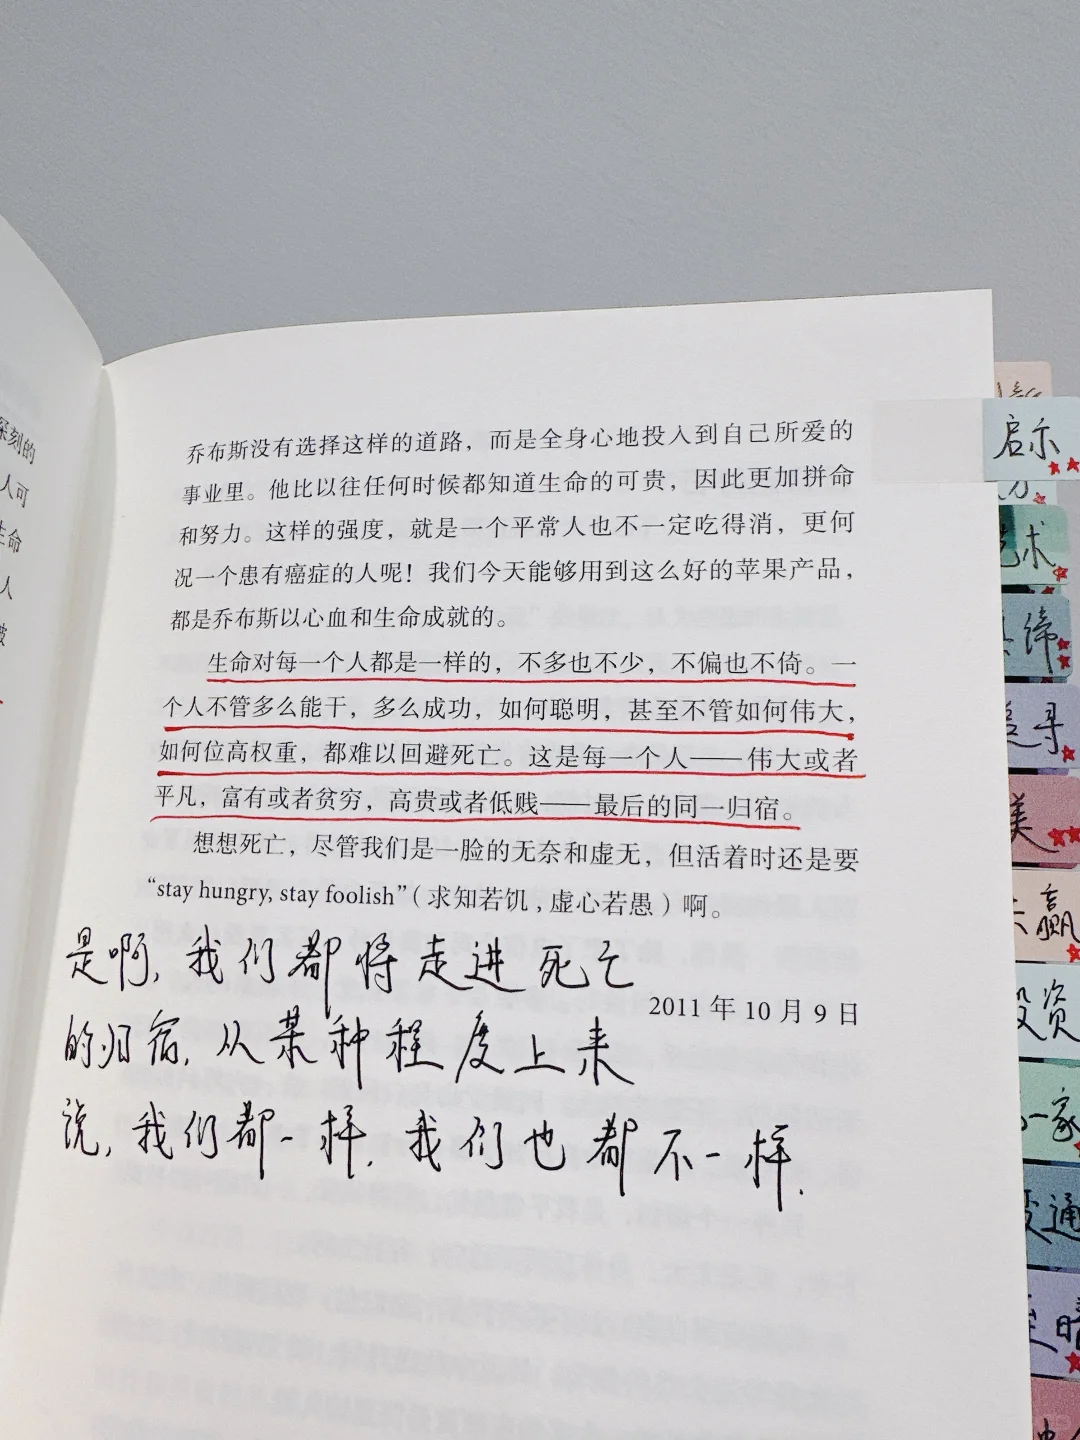 深刻的
人可
生命
人
乔布斯没有选择这样的道路，而是全身心地投入到自己所爱的
事业里。他比以往任何时候都知道生命的可贵，因此更加拼命
和努力。这样的强度，就是一个平常人也不一定吃得消，更何
况一个患有癌症的人呢！我们今天能够用到这么好的苹果产品，
都是乔布斯以心血和生命成就的。
生命对每一个人都是一样的，不多也不少，不偏也不倚。一
个人不管多么能干，多么成功，如何聪明，甚至不管如何伟大，
如何位高权重，都难以回避死亡。这是每一个人——伟大或者
平凡，富有或者贫穷，高贵或者低贱——最后的同一归宿。
想想死亡，尽管我们是一脸的无奈和虚无，但活着时还是要
“stay hungry, stay foolish”（求知若饥，虚心若愚）啊。
是啊，我们都将走进死亡
2011 年 10 月 9 日
的归宿，从某种程度上来
说，我们都一样，我们也都不一样.
启示
艺术
真谛
追寻
美
共赢
投资
一家
变通
至暗